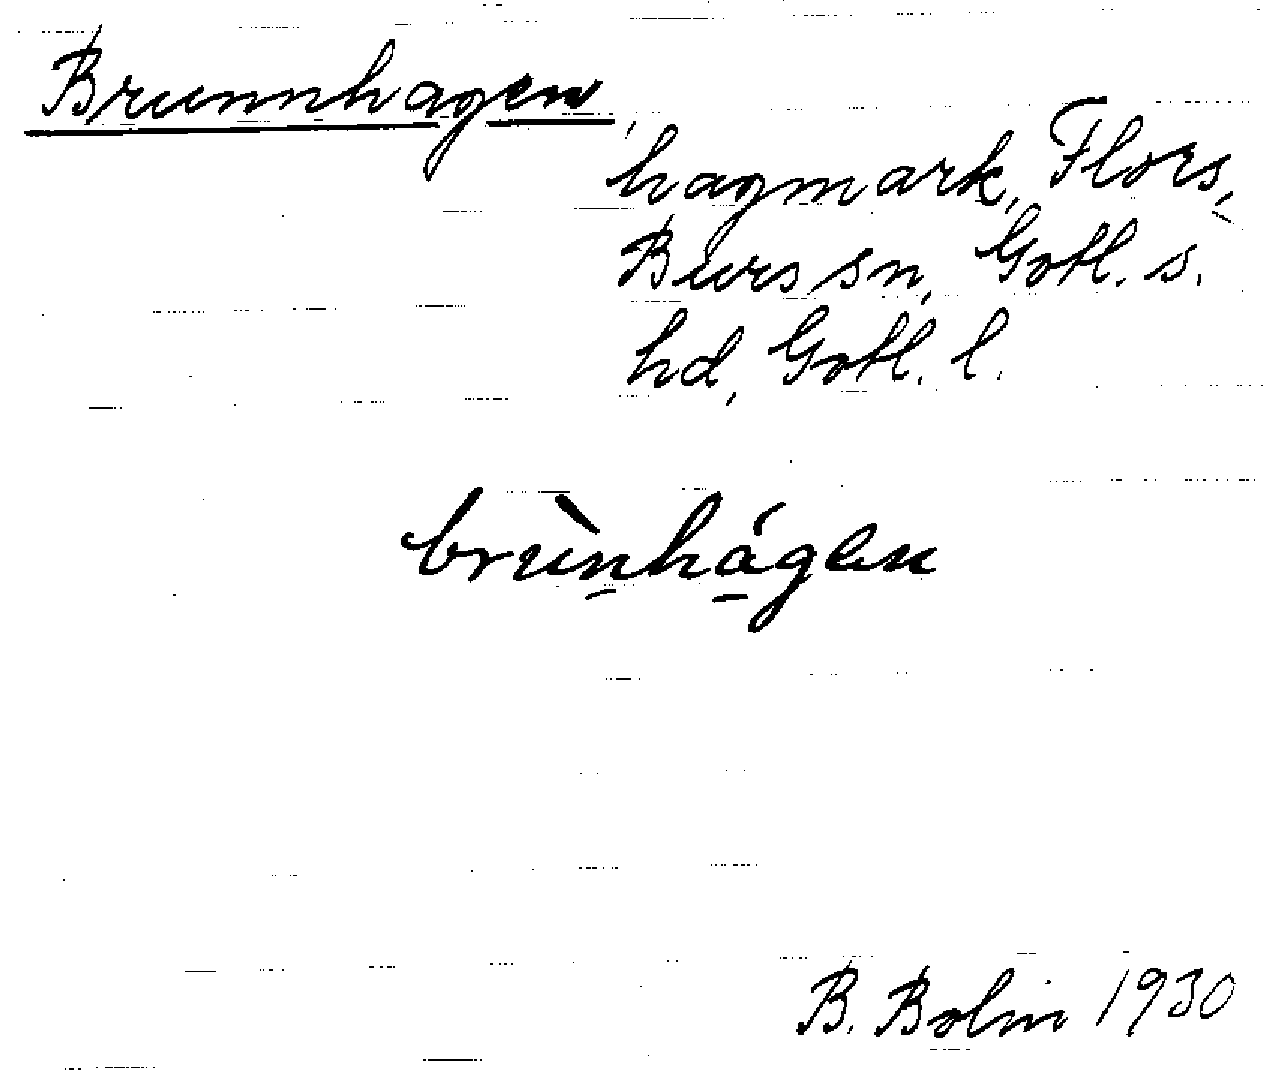 Brunnhagen,
hagmark, Flors,
Burs sn, Gotl. s.
hd, Gotl. l.
brùn̠há̠gen
B. Bolin 1930